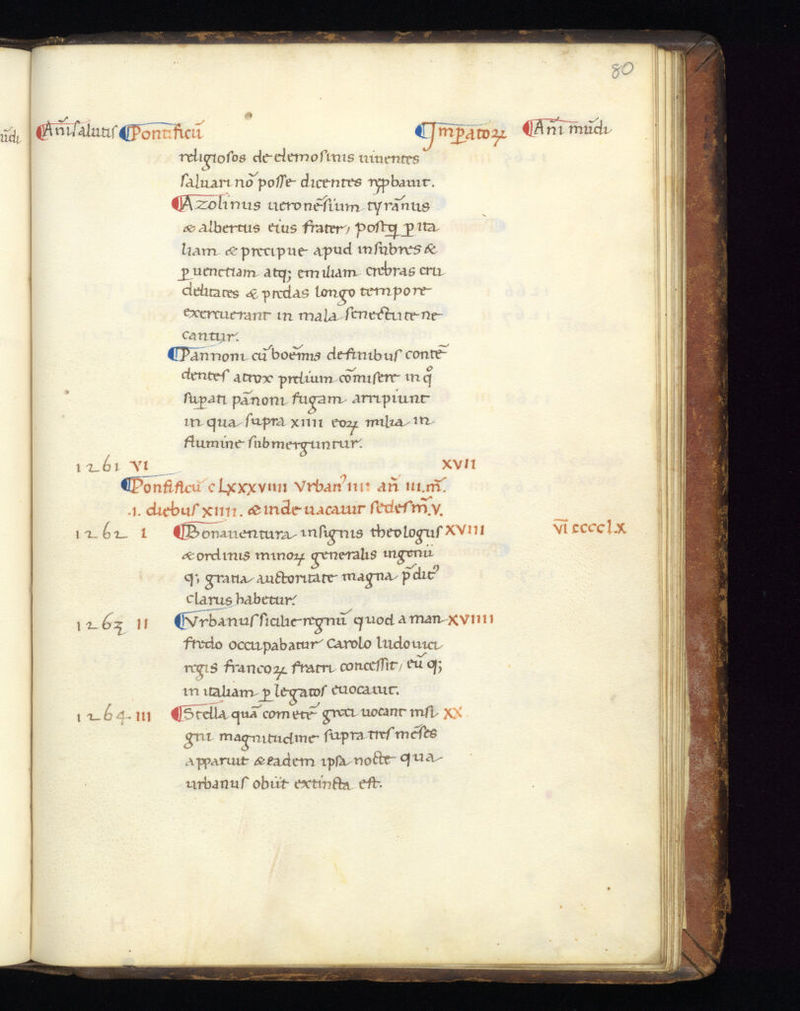 80
Añi salutis Pontificũ Imꝑatoꝝ Añi mũdi
religiosos de elemosinis uiuentes
saluari nõ posse dicentes ꝓbauit.
Azolinus ueronẽsium tyrãnus
& albertus eius frater, postq̃ ꝑ ita
liam & precipue apud insubres &
ꝑ uenetiam atq; emiliam crebras cru
delitates & predas longo tempore
exercuerant in mala senectute ne
cantur.
Pannoni cũ boemis de finibus contẽ
dentes atrox prelium cõmisere in qͦ
suꝑati pãnoni fugam arripiunt
in qua supra xiiii eoꝝ milia in
flumine submerguntur.
1261 VI XVII
Pontificũ cLxxxviiii Vrbanꝰ iiii añ iii.m̃.
.i. diebus xiiii. & inde uacauit sedes m̃.v.
1262 I Bonauentura insignis theologus XVIII vi ccccLx
& ordinis minoꝝ generalis ingenii
q; gratia auctoritate magna p̃ditꝰ
clarus habetur.
1263 II Vrbanus sicilie regnũ quod a man XVIIII
fredo occupabatur Carolo ludouici
regis francoꝝ fratri concessit, eũ q;
in italiam ꝑ legatos euocauit.
1264 III Stella quã cometẽ greci uocant insi XX
gni magnitudine supra tres mẽses
apparuit & eadem ipsa nocte qua
urbanus obiit extincta est.